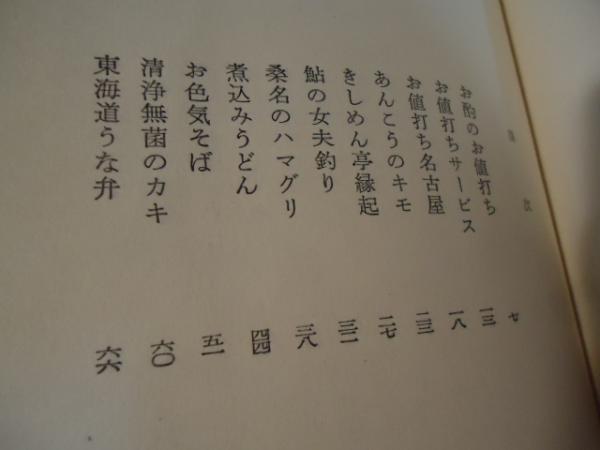 目次
お酌のお値打ち 七
お値打ちサービス 一三
お値打ち名古屋 一八
あんこうのキモ 二三
きしめん亭縁起 二七
鮎の女夫釣り 三二
桑名のハマグリ 三八
煮込みうどん 四四
お色気そば 五一
清浄無菌のカキ 六〇
東海道うな弁 六六